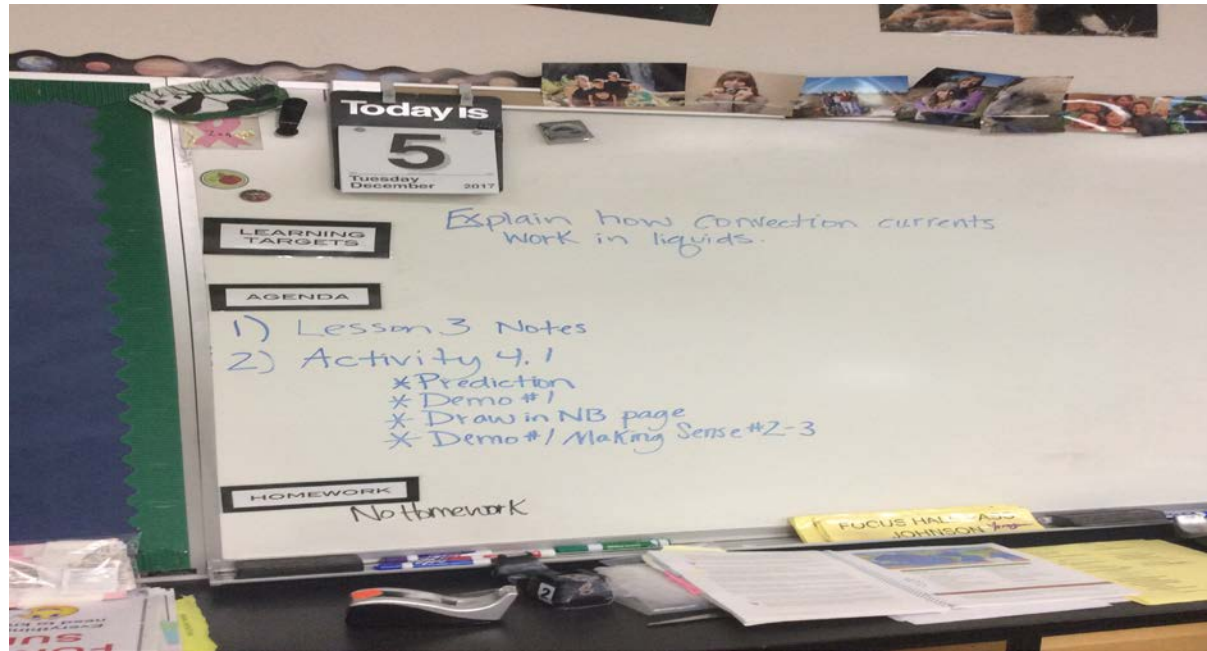 Today is
5
Tuesday
December 2017
LEARNING
TARGETS
Explain how convection currents
work in liquids.
AGENDA
1) Lesson 3 Notes
2) Activity 4.1
* Prediction
* Demo #1
* Draw in NB page
* Demo #1 Making Sense #2-3
HOMEWORK
No Homework
FOCUS HALL
JOHNSON
2
Everything
need to
SU